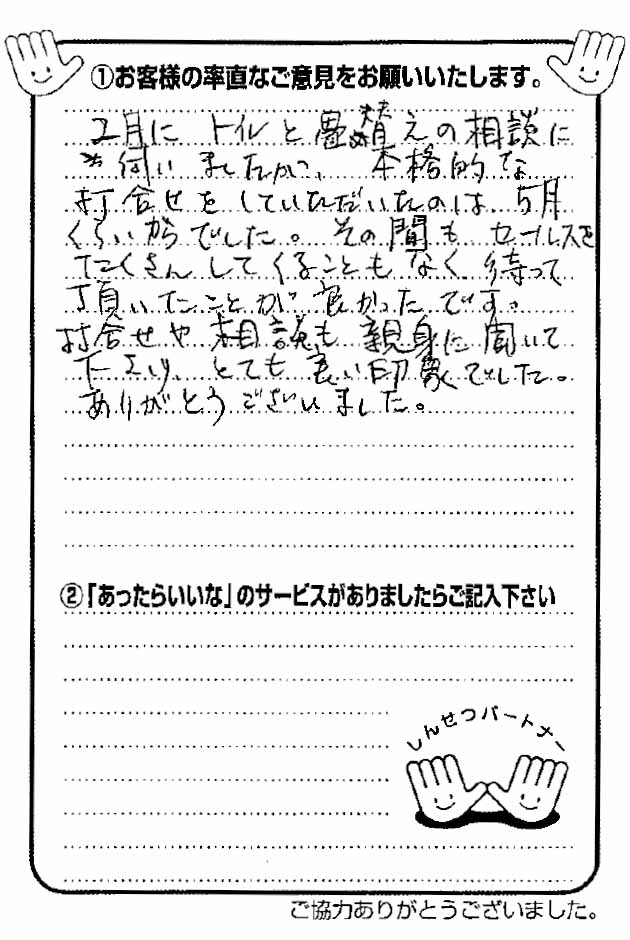 ①お客様の率直なご意見をお願いいたします。
2月に トイレと畳替えの相談に
伺いましたが、本格的な
打合せをしていただいたのは、5月
くらいからでした。その間も セールスを
たくさんしてくることもなく、待って
頂いたことが 良かったです。
打合せや 相談も 親身に 聞いて
下さり、とても 良い印象でした。
ありがとうございました。
②「あったらいいな」のサービスがありましたらご記入下さい
しんせつパートナー
ご協力ありがとうございました。